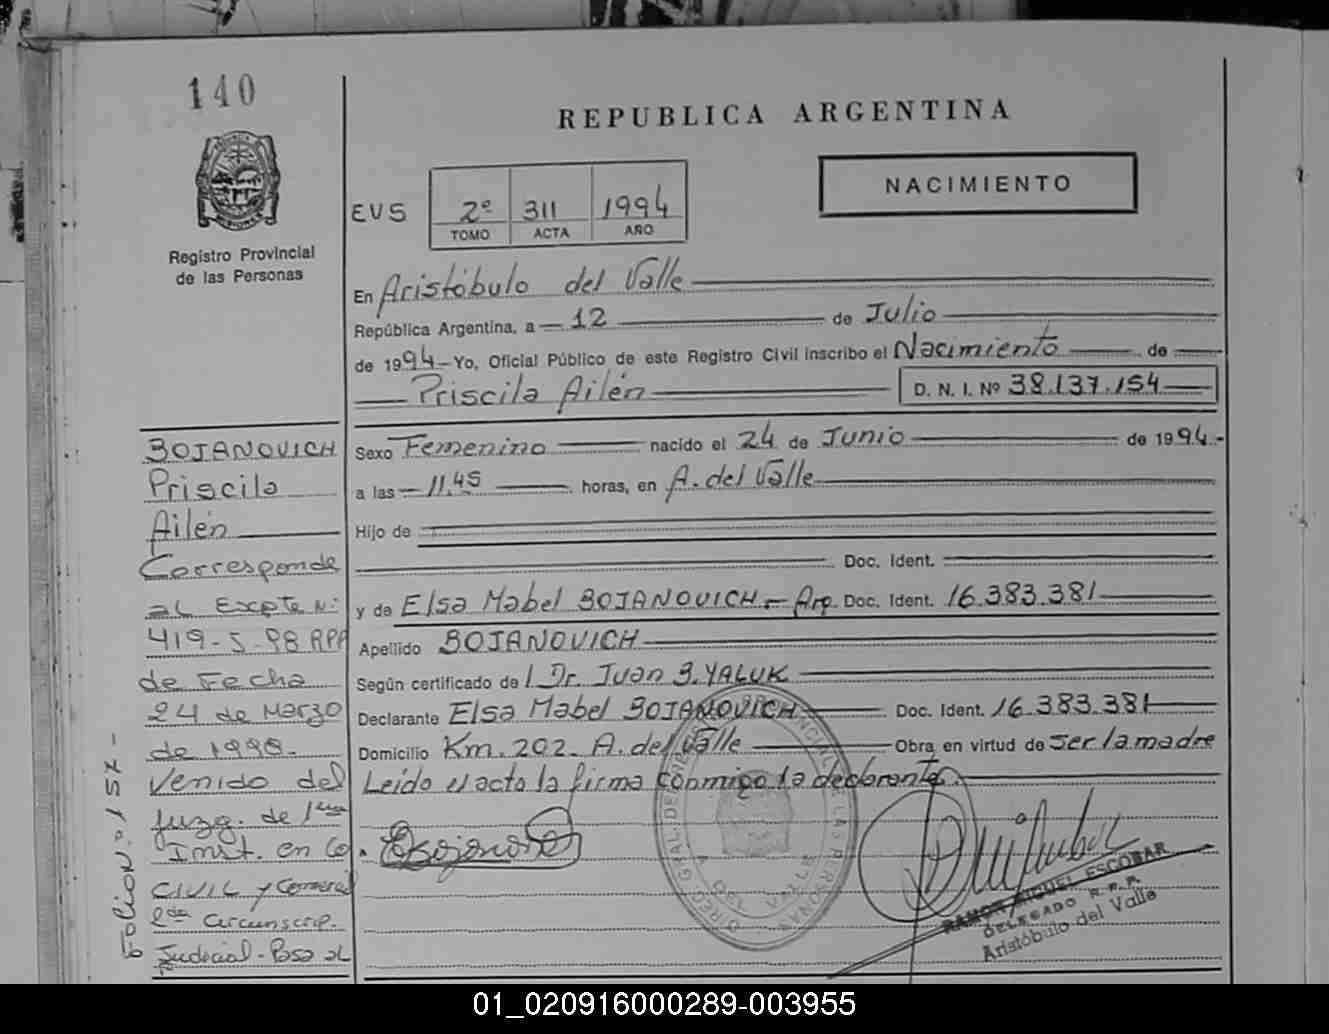 140
REPUBLICA ARGENTINA
NACIMIENTO
EVS
2º 311 1994
TOMO ACTA AÑO
Registro Provincial
de las Personas
En Aristóbulo del Valle
República Argentina, a 12 de Julio
de 1994 - Yo, Oficial Público de este Registro Civil inscribo el Nacimiento de
Priscila Ailén D. N. I. Nº 38.137.154
Sexo Femenino nacido el 24 de Junio de 1994-
a las 11,45 horas, en A. del Valle
Hijo de
Doc. Ident.
y de Elsa Mabel BOJANOVICH - Arg. Doc. Ident. 16.383.381
Apellido BOJANOVICH
Según certificado de l Dr. Juan B. YALUK
Declarante Elsa Mabel BOJANOVICH Doc. Ident. 16.383.381
Domicilio Km. 202 - A. del Valle Obra en virtud de ser la madre
Leído el acto la firma conmigo la declarante
RAMON MIGUEL ESCOBAR
DELEGADO R.P.P.
Aristóbulo del Valle
BOJANOVICH
Priscila
Ailén
Corresponde
al Expte Nº:
419-J-98 RPP
de Fecha
24 de Marzo
de 1998-
Venido del
Juzg. de 1era
Inst. en lo
CIVIL y Comercial
2da Circunscrip.
Judicial - Pasa al
Folio Nº 157-
01_020916000289-003955